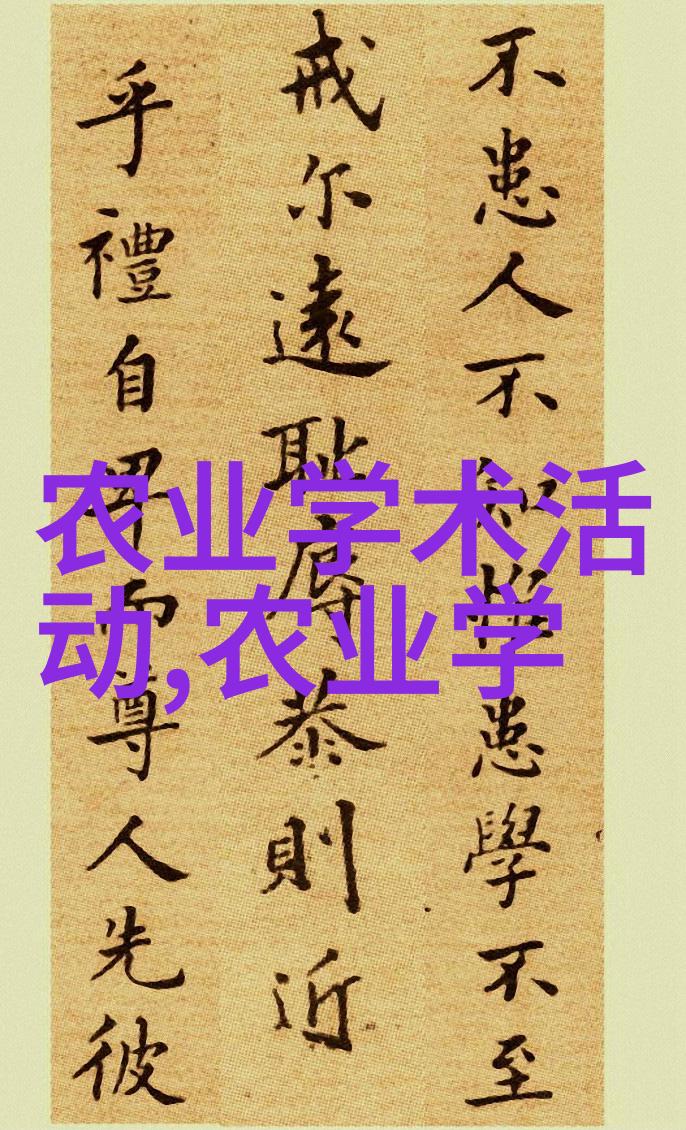 不患人不知惟患學不至
戒尔遠耻辱恭則近
乎禮自卑而尊人先彼
农业学术活
动,农业学